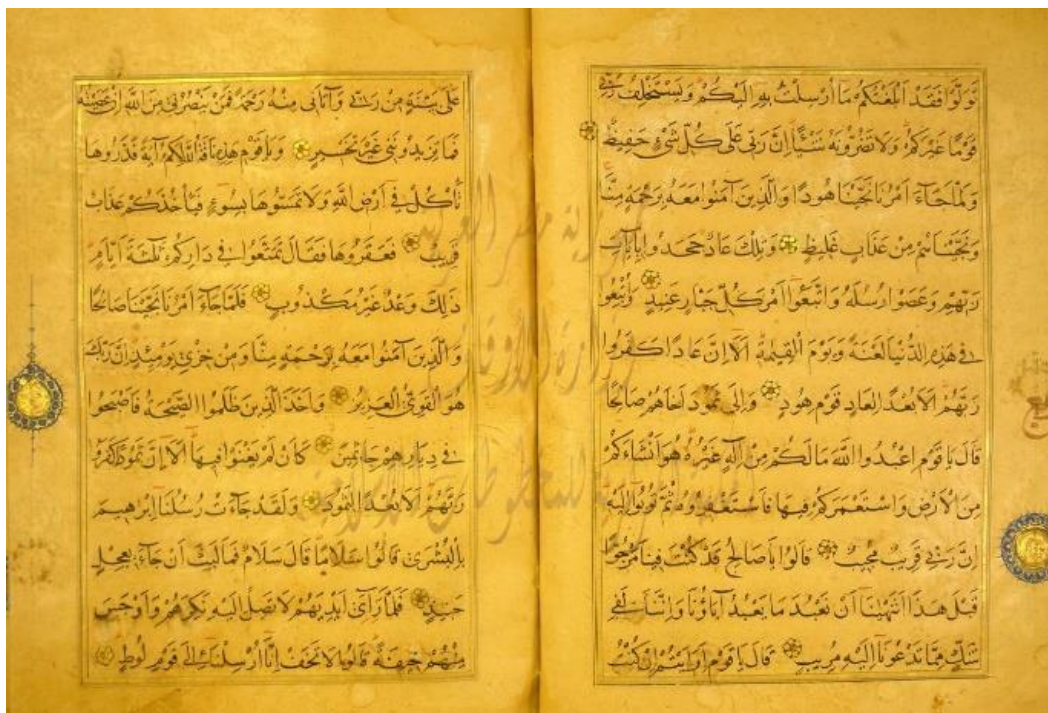 تولوا فقد ابلغتكم ما ارسلت به اليكم ويستخلف ربي
قوما غيركم ولا تضرونه شيئا ان ربي على كل شيء حفيظ
ولما جاء امرنا نجينا هودا والذين آمنوا معه برحمة منا
ونجيناهم من عذاب غليظ وتلك عاد جحدوا بايات
ربهم وعصوا رسله واتبعوا امر كل جبار عنيد واتبعوا
في هذه الدنيا لعنة ويوم القيمة الا ان عادا كفروا
ربهم الا بعدا لعاد قوم هود والى ثمود اخاهم صالحا
قال يا قوم اعبدوا الله ما لكم من اله غيره هو انشاءكم
من الارض واستعمركم فيها فاستغفروه ثم توبوا اليه
ان ربي قريب مجيب قالوا يا صالح قد كنت فينا مرجوا
قبل هذا اتنهينا ان نعبد ما يعبد آباؤنا واننا لفي
شك مما تدعونا اليه مريب قال يا قوم ارايتم ان كنت
على بينة من ربي وآتاني منه رحمة فمن ينصرني من الله ان عصيته
فما تزيدونني غير تخسير ويا قوم هذه ناقة الله لكم آية فذروها
تأكل في ارض الله ولا تمسوها بسوء فيأخذكم عذاب
قريب فعقروها فقال تمتعوا في داركم ثلثة ايام
ذلك وعد غير مكذوب فلما جاء امرنا نجينا صالحا
والذين آمنوا معه برحمة منا ومن خزي يومئذ ان ربك
هو القوي العزيز واخذ الذين ظلموا الصيحة فاصبحوا
في ديارهم جاثمين كأن لم يغنوا فيها الا ان ثمود كفروا
ربهم الا بعدا لثمود ولقد جاءت رسلنا ابرهيم
بالبشرى قالوا سلاما قال سلام فما لبث ان جاء بعجل
حنيذ فلما رآى ايديهم لا تصل اليه نكرهم واوجس
منهم خيفة قالوا لا تخف انا ارسلنا الى قوم لوط